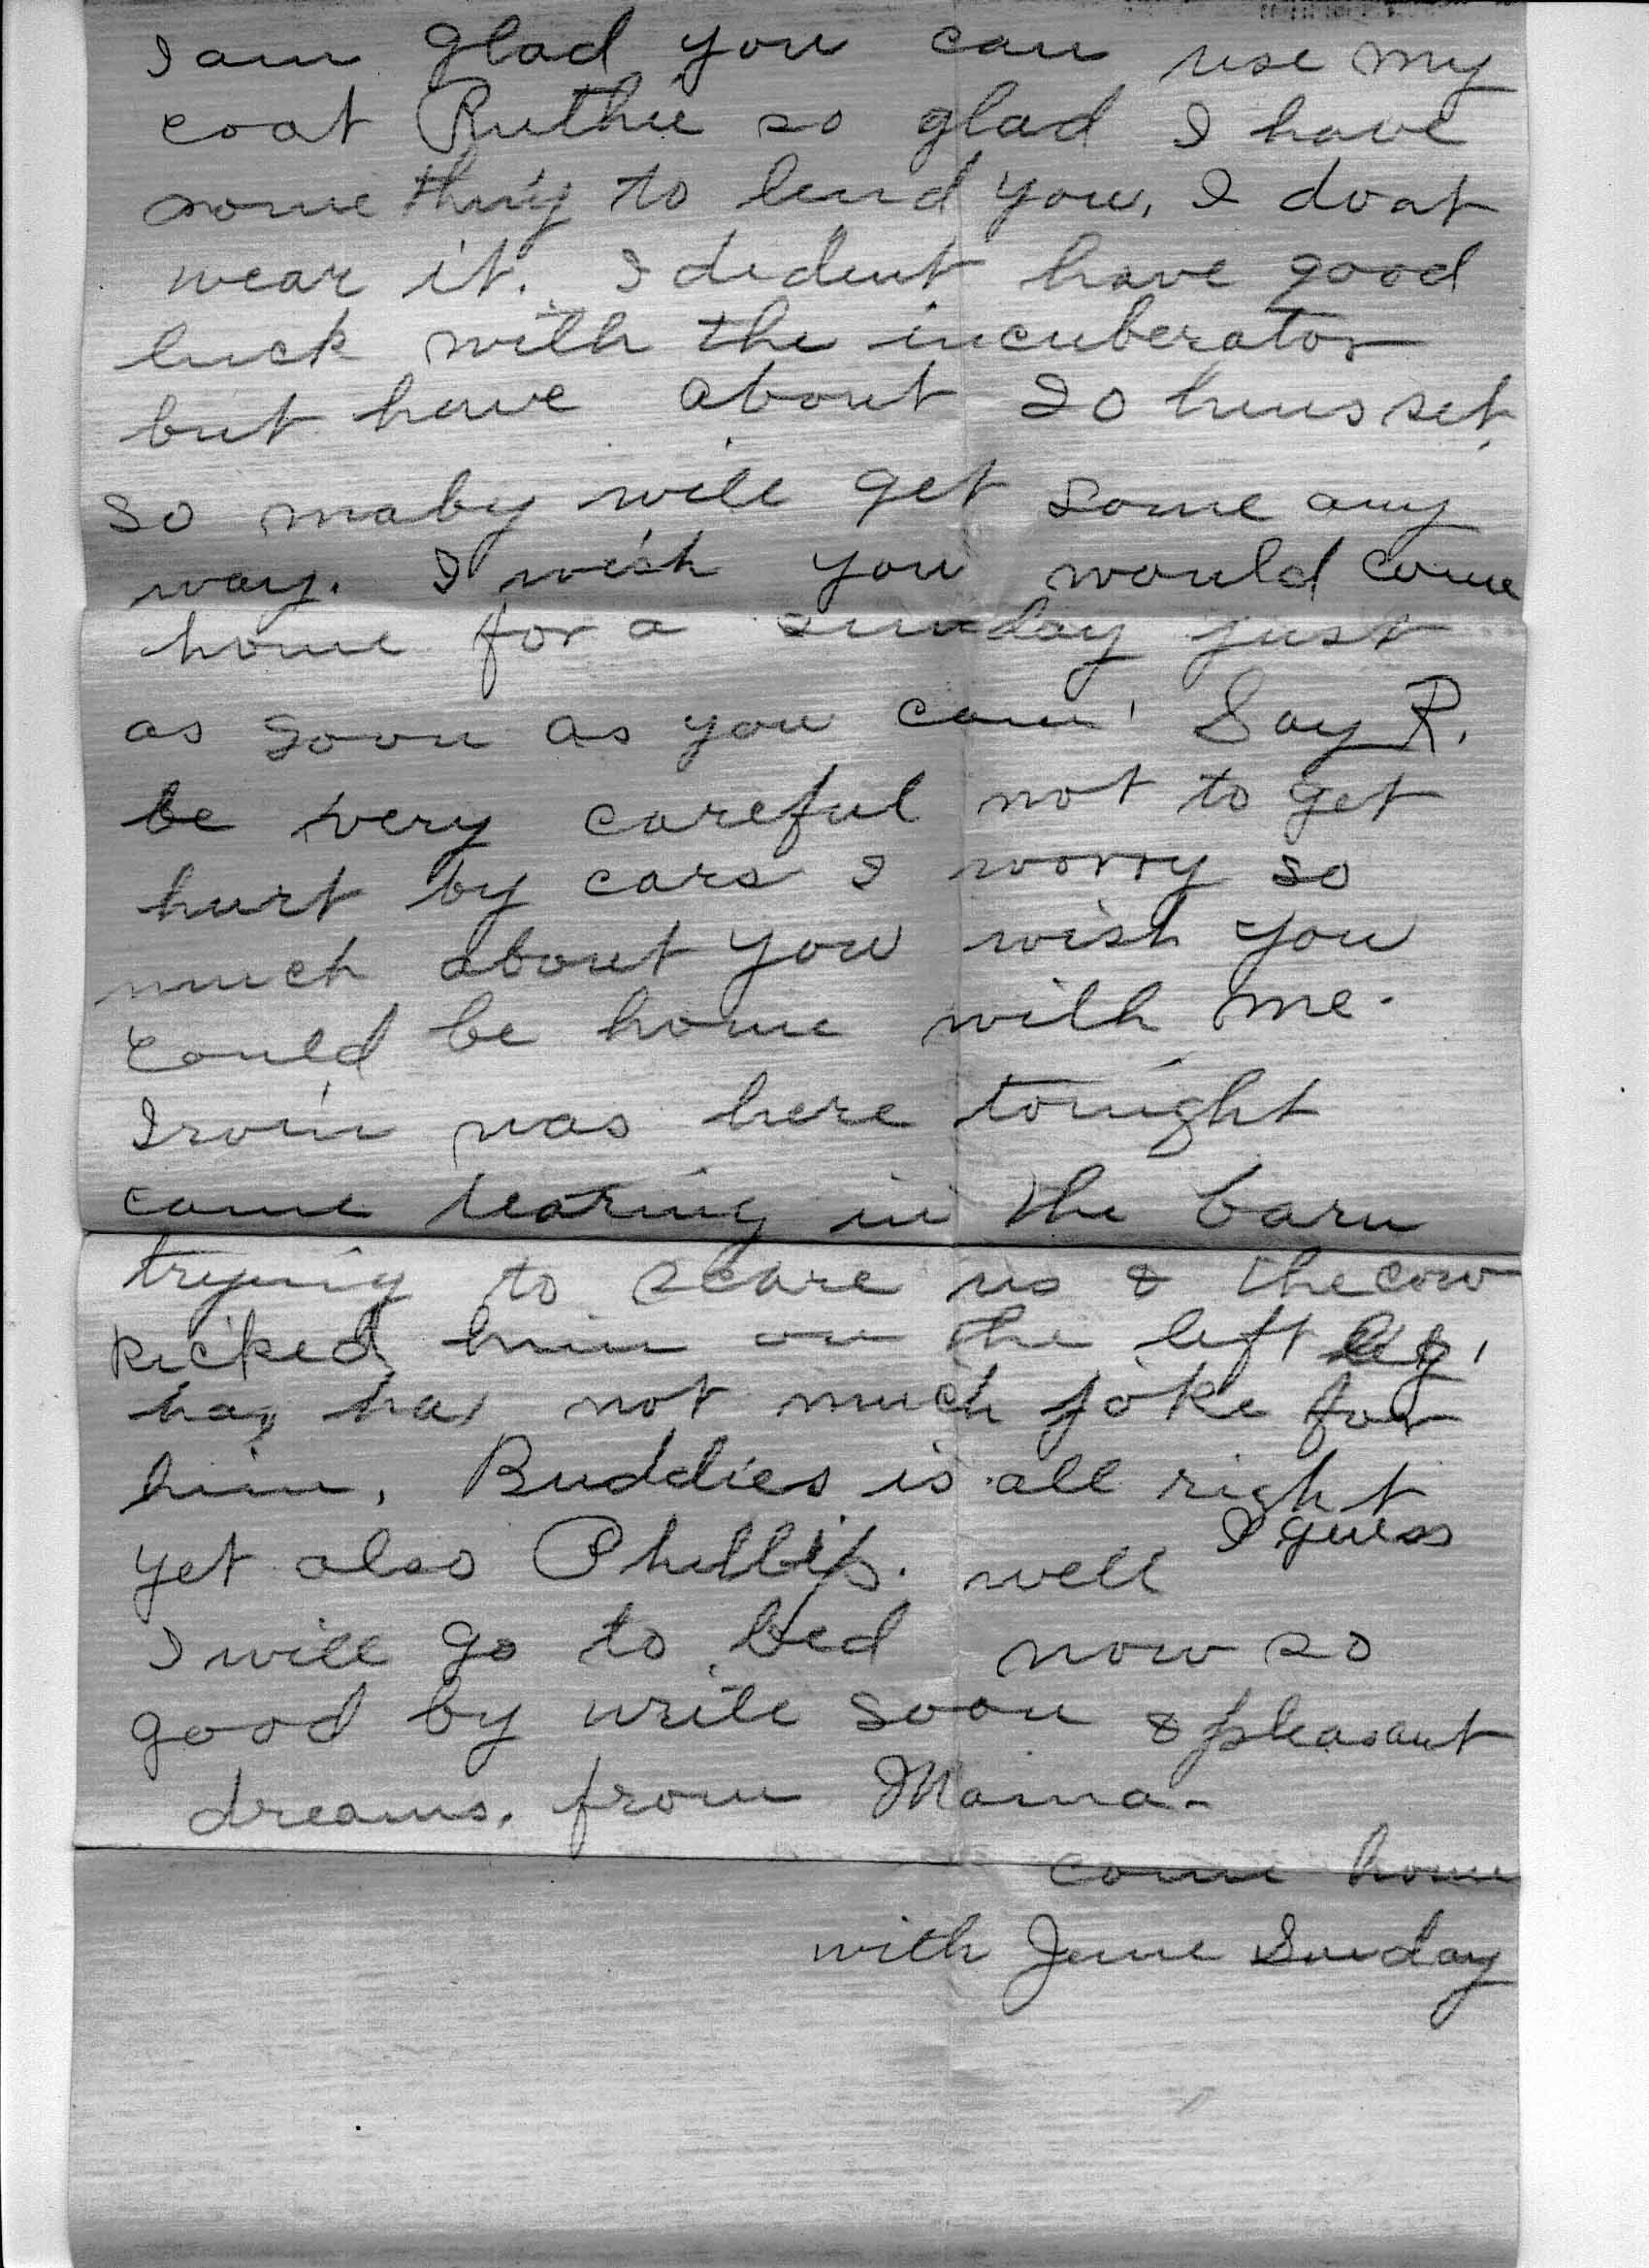 I am glad you can use my
coat Ruthie so glad I have
some thing to lend you, I dont
wear it. I dident have good
luck with the incuberator
but have about 20 hens set,
so maby will get some any
way. I wish you would come
home for a sunday just
as soon as you can. Say R.
be very careful not to get
hurt by cars I worry so
much about you wish you
could be home with me.
Irvin was here tonight
came tearing in the barn
trying to scare us & the cow
kicked him on the left leg,
ha, ha, not much joke for
him. Buddies is all right
yet also Phillip. well I guess
I will go to bed now so
good by write soon & pleasant
dreams. from Mama-
come home
with June Sunday